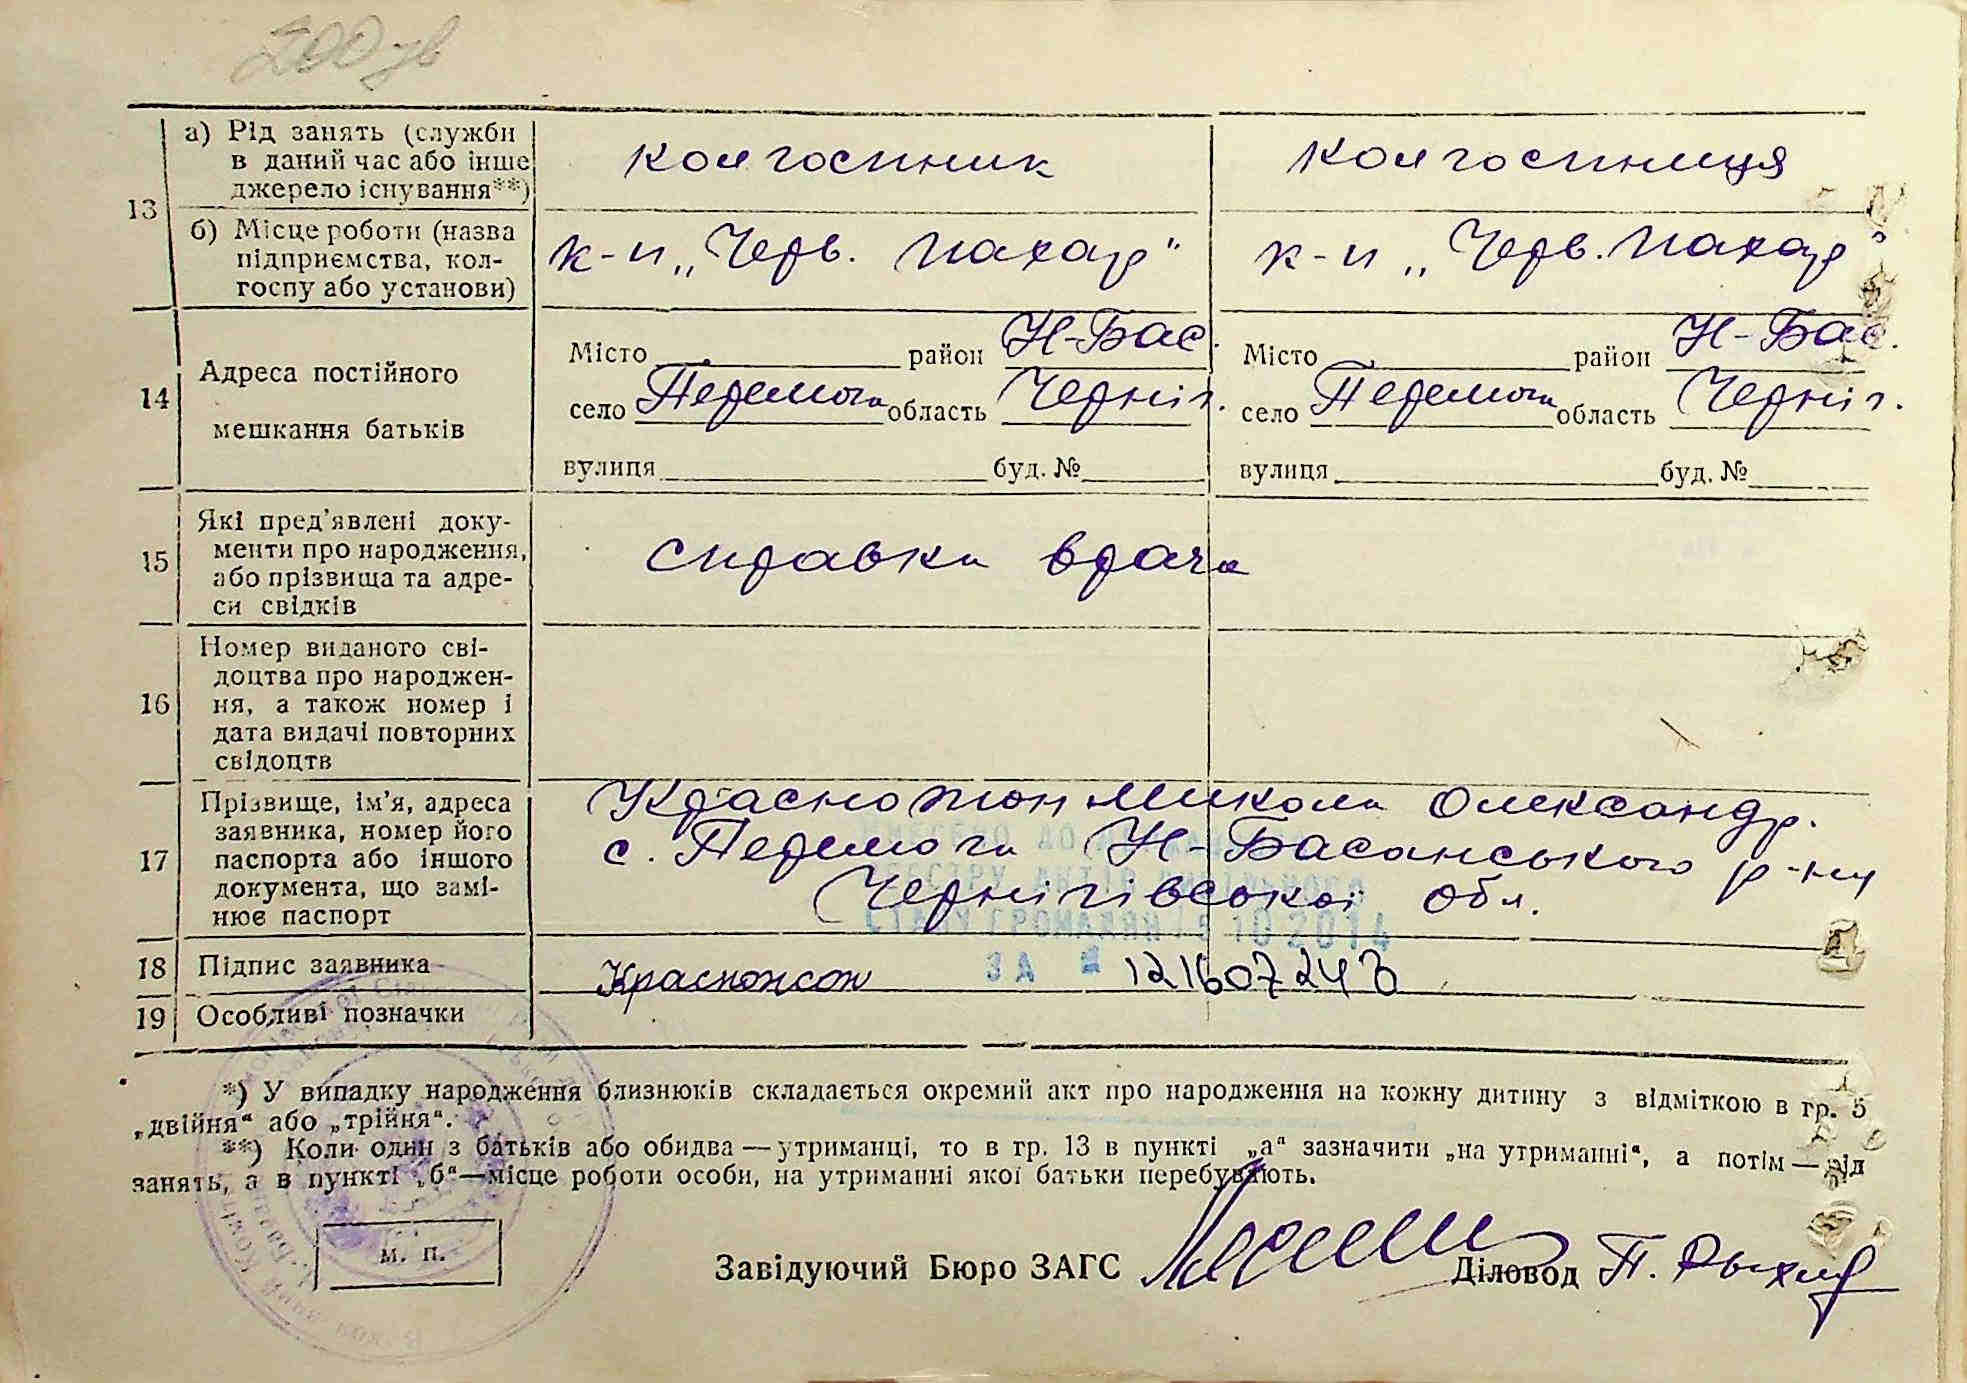 200 зв
13
а) Рід занять (служби в даний час або інше джерело існування**)
колгоспник
колгоспниця
б) Місце роботи (назва підприємства, колгоспу або установи)
к-п „Черв. Пахар"
к-п „Черв. Пахар"
14
Адреса постійного
мешкання батьків
Місто район Н-Бас.
Місто район Н-Бас.
село Перемога область Черніг.
село Перемога область Черніг.
вулиця буд. №
вулиця буд. №
15
Які пред'явлені доку-
менти про народження,
або прізвища та адре-
си свідків
справка врача
16
Номер виданого сві-
доцтва про народжен-
ня, а також номер і
дата видачі повторних
свідоцтв
17
Прізвище, ім'я, адреса
заявника, номер його
паспорта або іншого
документа, що замі-
нює паспорт
Красножон Микола Олександр.
с. Перемога Н-Басанського р-ну
Чернігівської обл.
СТАНУ ГРОМАДЯН 10 2014
18 Підпис заявника
Красножон
ЗА № 121607243
19 Особливі позначки
*) У випадку народження близнюків складається окремий акт про народження на кожну дитину з відміткою в гр. 5
„двійня“ або „трійня“.
**) Коли один з батьків або обидва — утриманці, то в гр. 13 в пункті „а“ зазначити „на утриманні“, а потім — рід
занять, а в пункті „б“ — місце роботи особи, на утриманні якої батьки перебувають.
м. п.
Завідуючий Бюро ЗАГС
Діловод П.